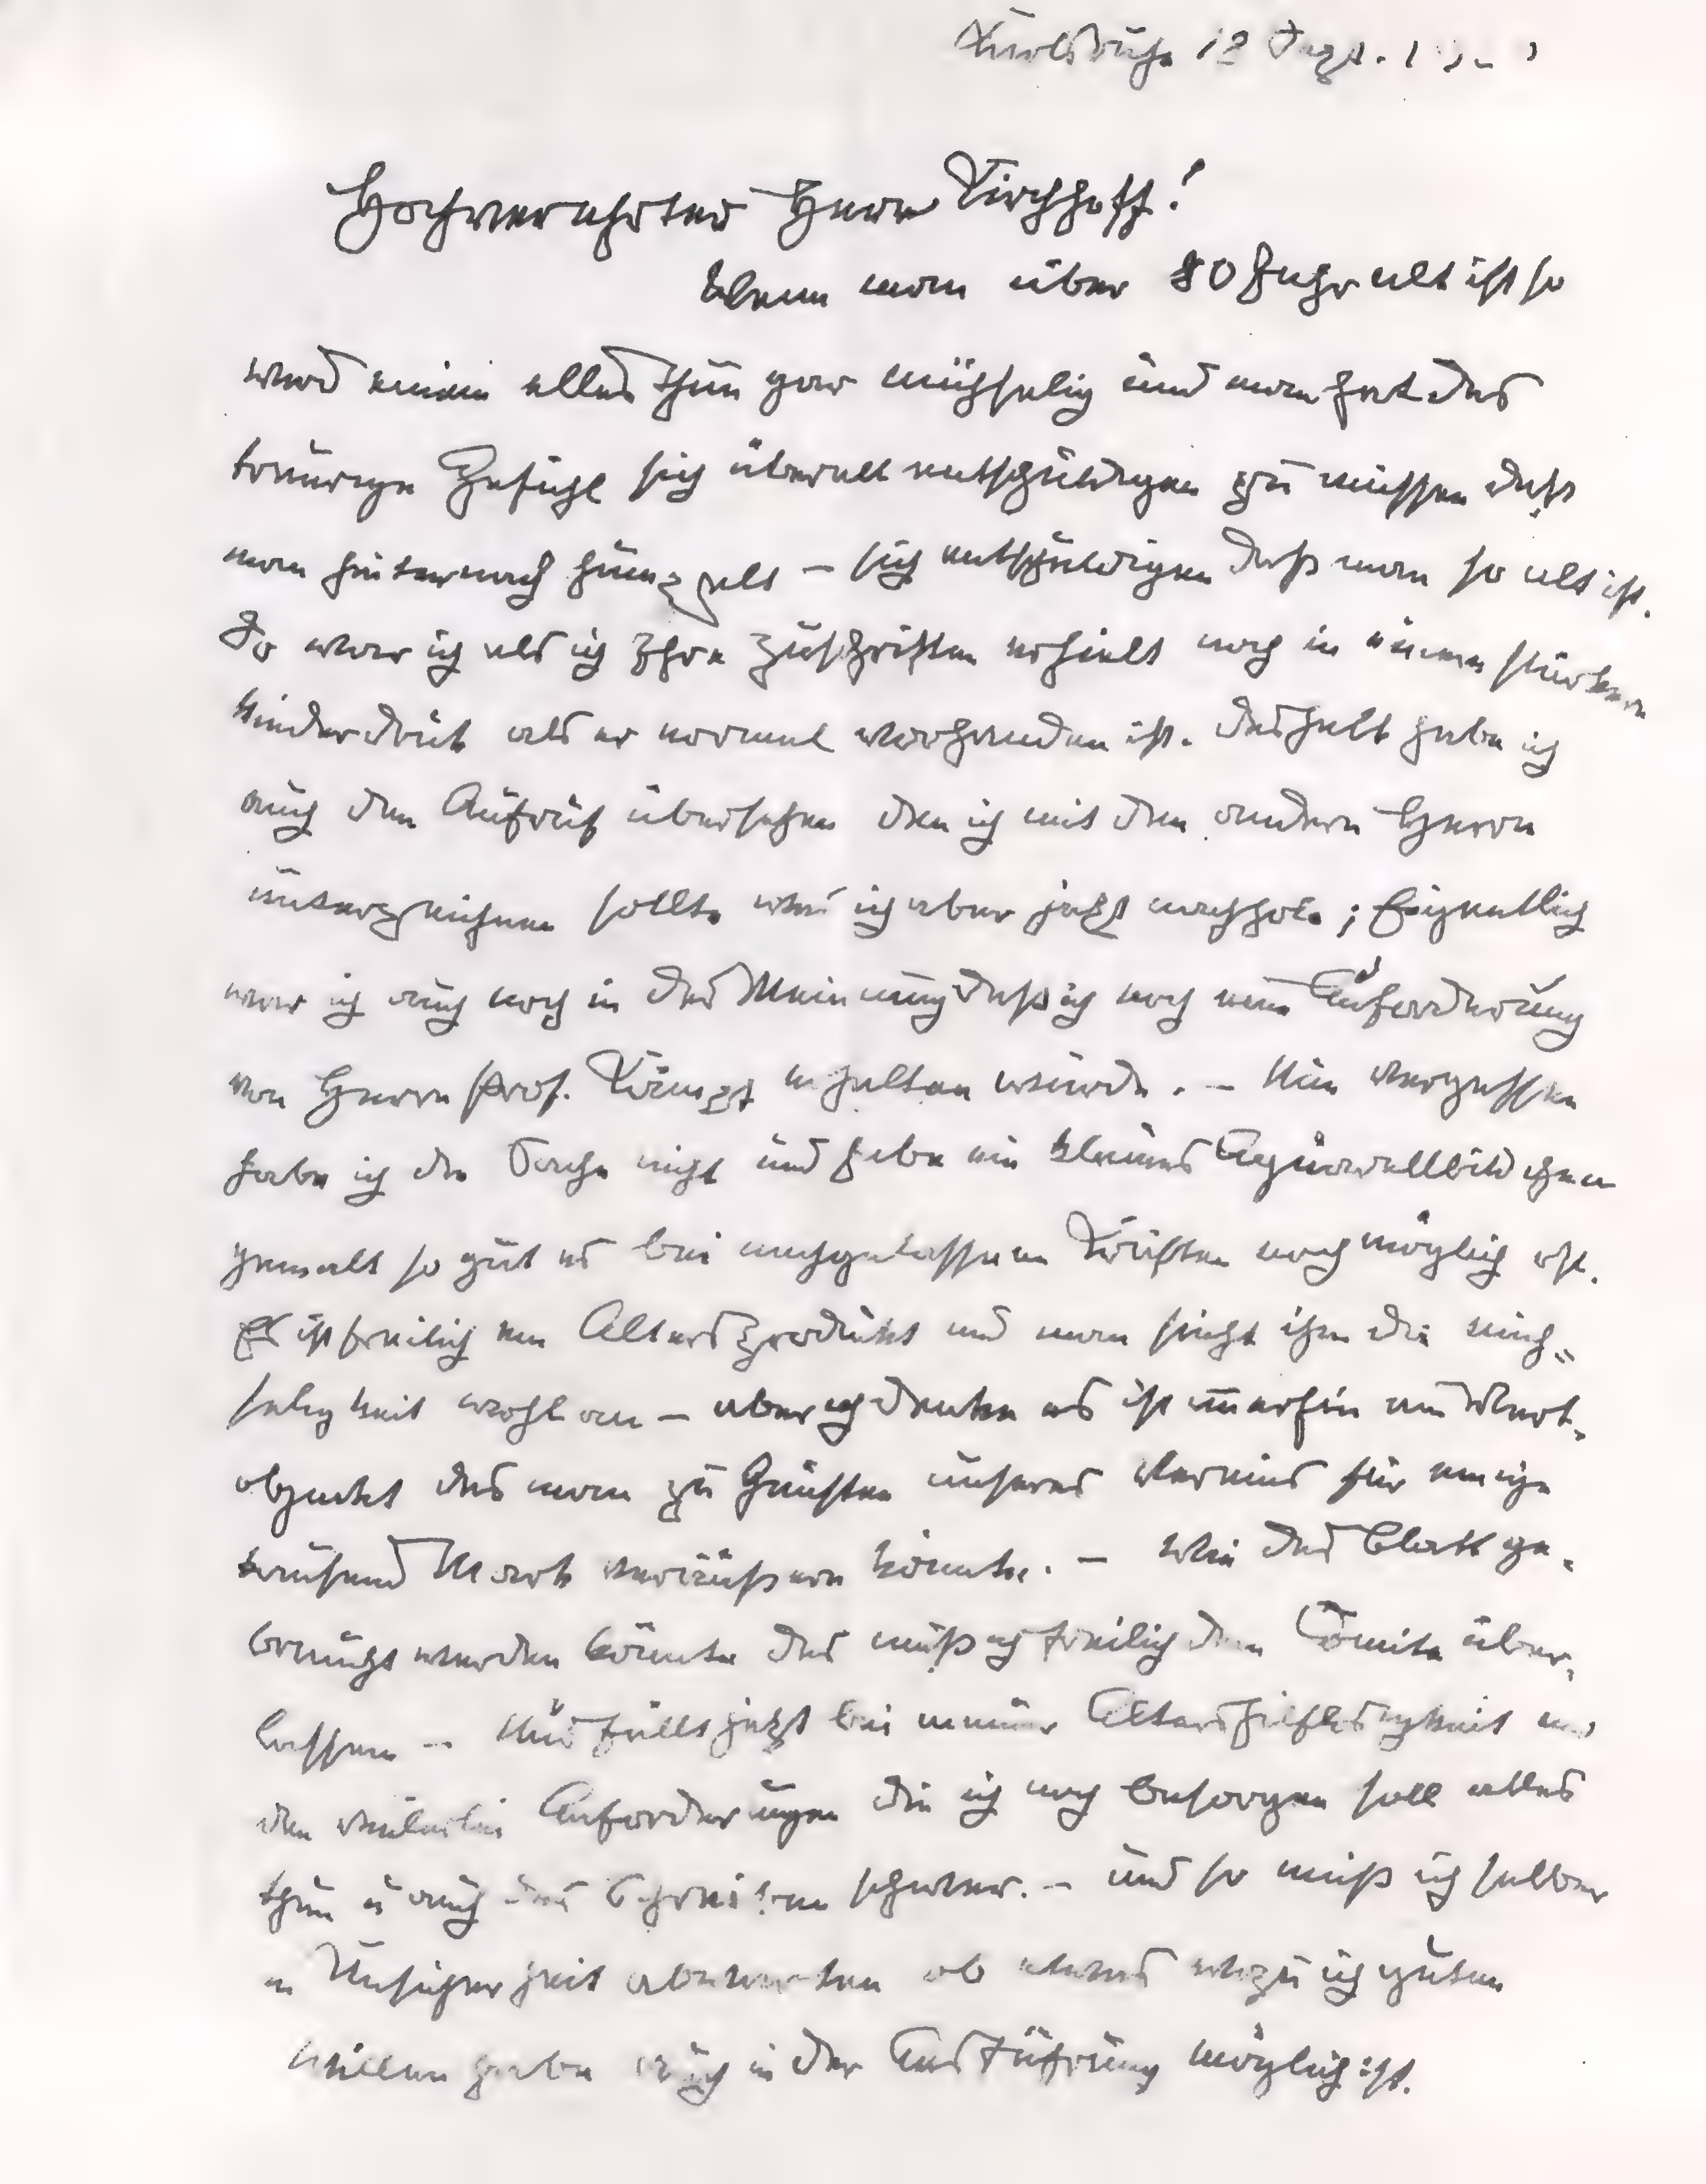 Karlsruhe 18 Dezb.
Hochverehrter Herr Kirchhoff!
Wenn man über 80 Jahr alt ist so
wird einem alles Thun gar mühselig und man hat das
traurige Gefühl sich überall entschuldigen zu müssen daß
man hintennach hümpelt — sich entschuldigen daß man so alt ist.
So war ich als ich Ihre Zuschriften erhielt noch in einem stärkern
Niederdruck als er normal vorhanden ist. Deshalb habe ich
auch den Aufruf übersehen den ich mit den andern Herrn
unterzeichnen sollte was ich aber jetzt nachhole; Eigentlich
war ich auch noch in der Meinung daß ich noch eine Aufforderung
von Herrn Prof. erhalten würde. — Nun vergessen
habe ich die Sache nicht und habe ein kleines Aquarellbildchen
gemalt so gut es bei nachgelassenen Kräften noch möglich ist.
Es ist freilich ein Altersprodukt und man sieht ihm die Müh=
seligkeit wohl an — aber ich denke es ist immerhin ein Wert=
objeckt das man zu Gunsten unseres Vereins für einige
tausend Mark veräußern könnte. — Wie das Blatt ge=
braucht werden könnte das muß ich freilich dem Comite über=
lassen — Mir fällt jetzt bei meiner Altershilflosigkeit und
den vielerlei Anforderungen die ich noch besorgen soll alles
thun u auch das Schreiben schwer. — und so muß ich selber
in Unsicherheit abwarten ob etwas wozu ich guten
Willen habe auch in der Ausführung möglich ist.